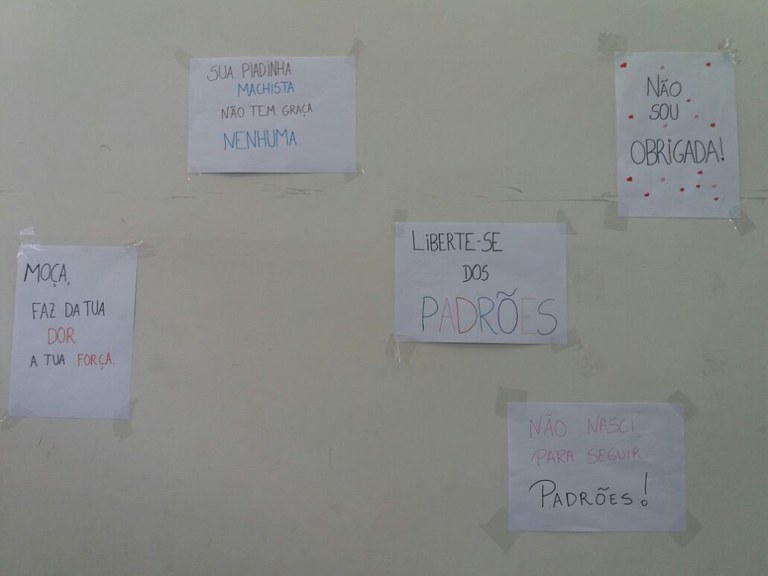 SUA PIADINHA
MACHISTA
NÃO TEM GRAÇA
NENHUMA
NÃO
SOU
OBRIGADA!
MOÇA,
FAZ DA TUA
DOR
A TUA FORÇA.
LIBERTE-SE
DOS
PADRÕES
NÃO NASCI
PARA SEGUIR
PADRÕES!